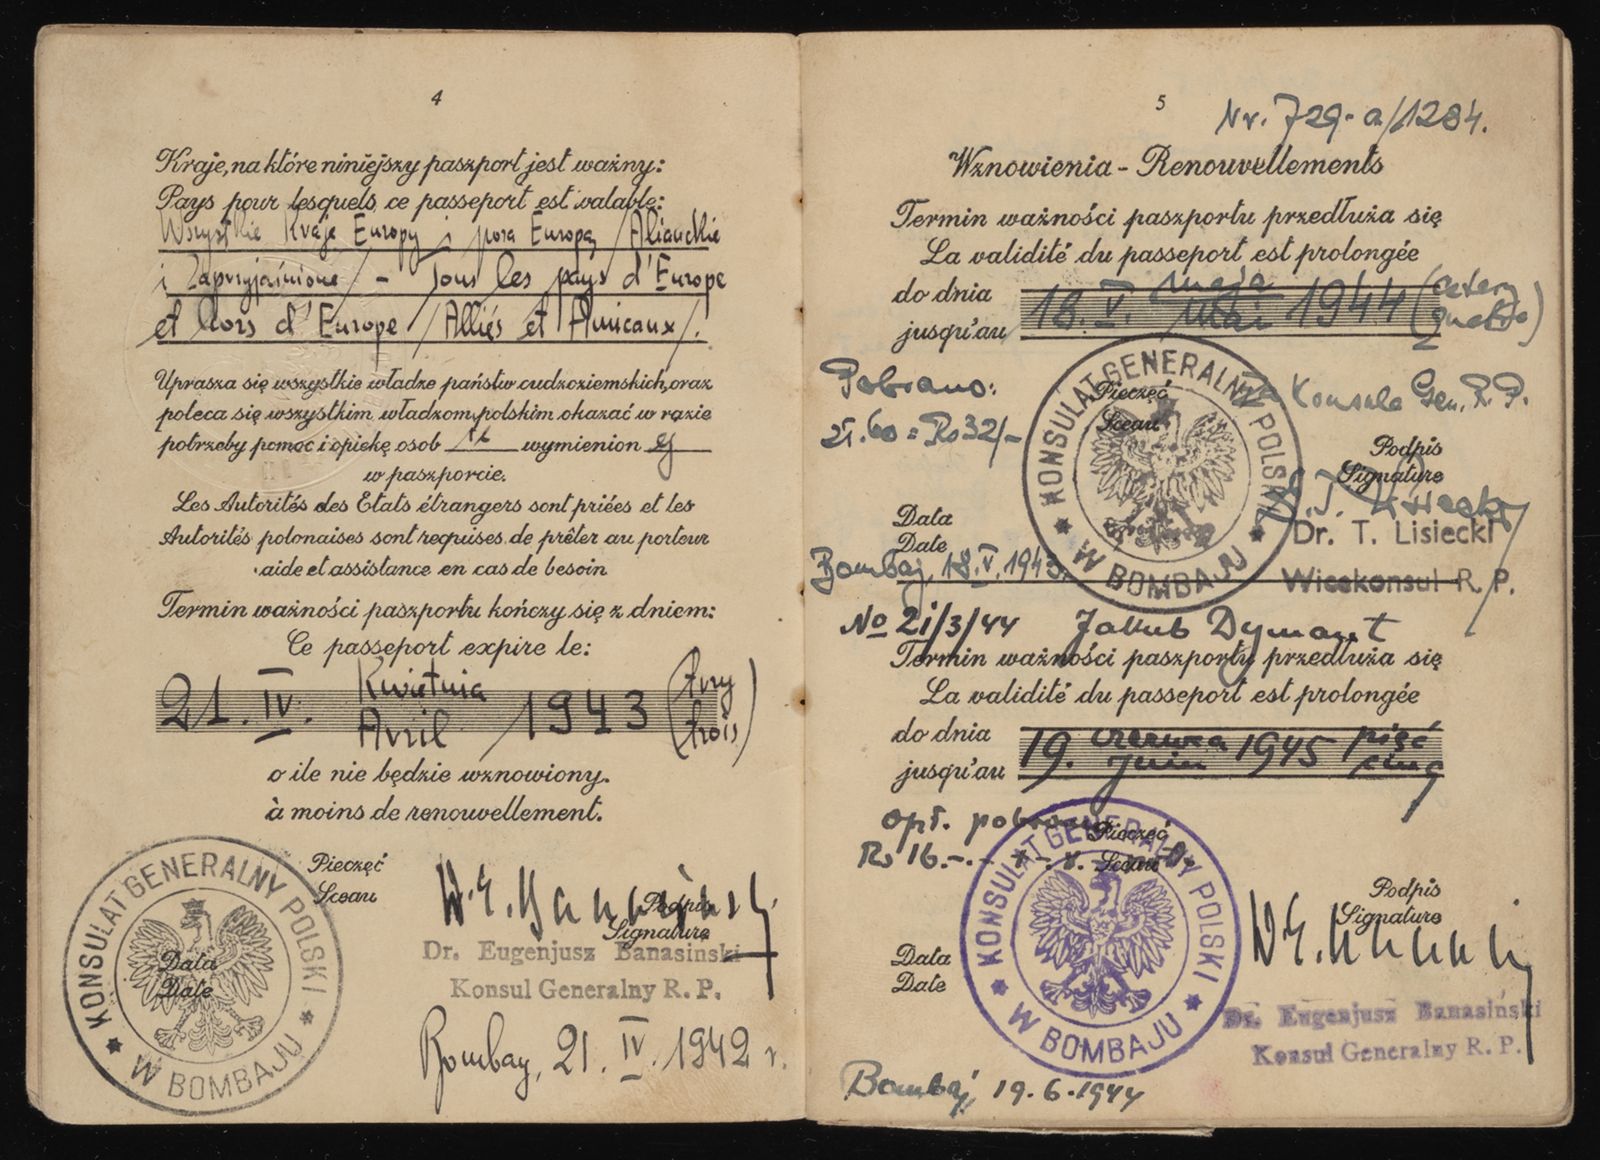 4
Kraje, na które niniejszy paszport jest ważny:
Pays pour lesquels ce passeport est valable:
Wszystkie Kraje Europy i poza Europą /Alianckie
i Zaprzyjaźnione/ - Tous les pays d'Europe
et hors d'Europe /Alliés et Amicaux/.
Uprasza się wszystkie władze państw cudzoziemskich, oraz
poleca się wszystkim władzom polskim okazać w razie
potrzeby pomoc i opiekę osob ie wymienion ej
w paszporcie.
Les Autorités des Etats étrangers sont priées et les
Autorités polonaises sont requises de prêter au porteur
aide et assistance en cas de besoin
Termin ważności paszportu kończy się z dniem:
Ce passeport expire le:
21. IV. Kwietnia 1943 (trzy
Avril trois)
o ile nie będzie wznowiony.
à moins de renouvellement.
Pieczęć
Sceau
KONSULAT GENERALNY POLSKI
W BOMBAJU
Data
Date
Podpis
Signature
Dr. Eugenjusz Banasiński
Konsul Generalny R. P.
Bombay, 21. IV. 1942 r.
5
Nr. 729-a/1284.
Wznowienia - Renouvellements
Termin ważności paszportu przedłuża się
La validité du passeport est prolongée
do dnia
jusqu'au
18. V. maja 1944 (cztery
mai quatre)
Pobrano:
21.60 = Rs 32/-
Pieczęć
Sceau
KONSULAT GENERALNY POLSKI
W BOMBAJU
Za Konsula Gen. R. P.
Podpis
Signature
Dr. T. Lisiecki
Wicekonsul R. P.
Data
Date
Bombaj, 18.V.1943.
No 21/3/44 Jakub Dymant
Termin ważności paszportu przedłuża się
La validité du passeport est prolongée
do dnia
jusqu'au
19. czerwca 1945 pięć
juin cinq
Opł. pobrano
Rs 16.-
Pieczęć
Sceau
KONSULAT GENERALNY POLSKI
W BOMBAJU
Podpis
Signature
Data
Date
Dr. Eugenjusz Banasiński
Konsul Generalny R. P.
Bombaj, 19.6.1944